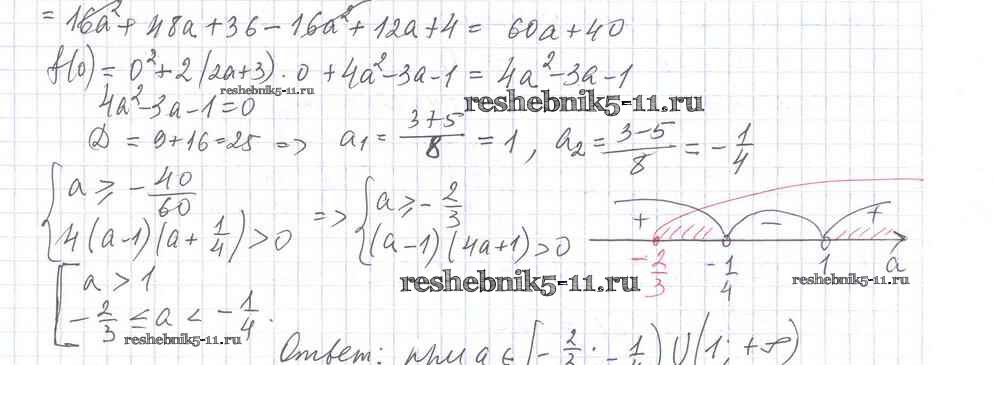 = 16a² + 48a + 36 - 16a² + 12a + 4 = 60a + 40
f(0) = 0² + 2(2a+3)·0 + 4a² - 3a - 1 = 4a² - 3a - 1
reshebnik5-11.ru
4a² - 3a - 1 = 0
reshebnik5-11.ru
D = 9 + 16 = 25 => a₁ = (3+5)/8 = 1, a₂ = (3-5)/8 = -1/4
{ a ≥ -40/60 => { a ≥ -2/3
4(a-1)(a+1/4) > 0 (a-1)(4a+1) > 0
+ - +
-2/3 -1/4 1 a
reshebnik5-11.ru
reshebnik5-11.ru
[ a > 1
-2/3 ≤ a < -1/4.
reshebnik5-11.ru
Ответ: при a ∈ [-2/3; -1/4) ∪ (1; +∞)